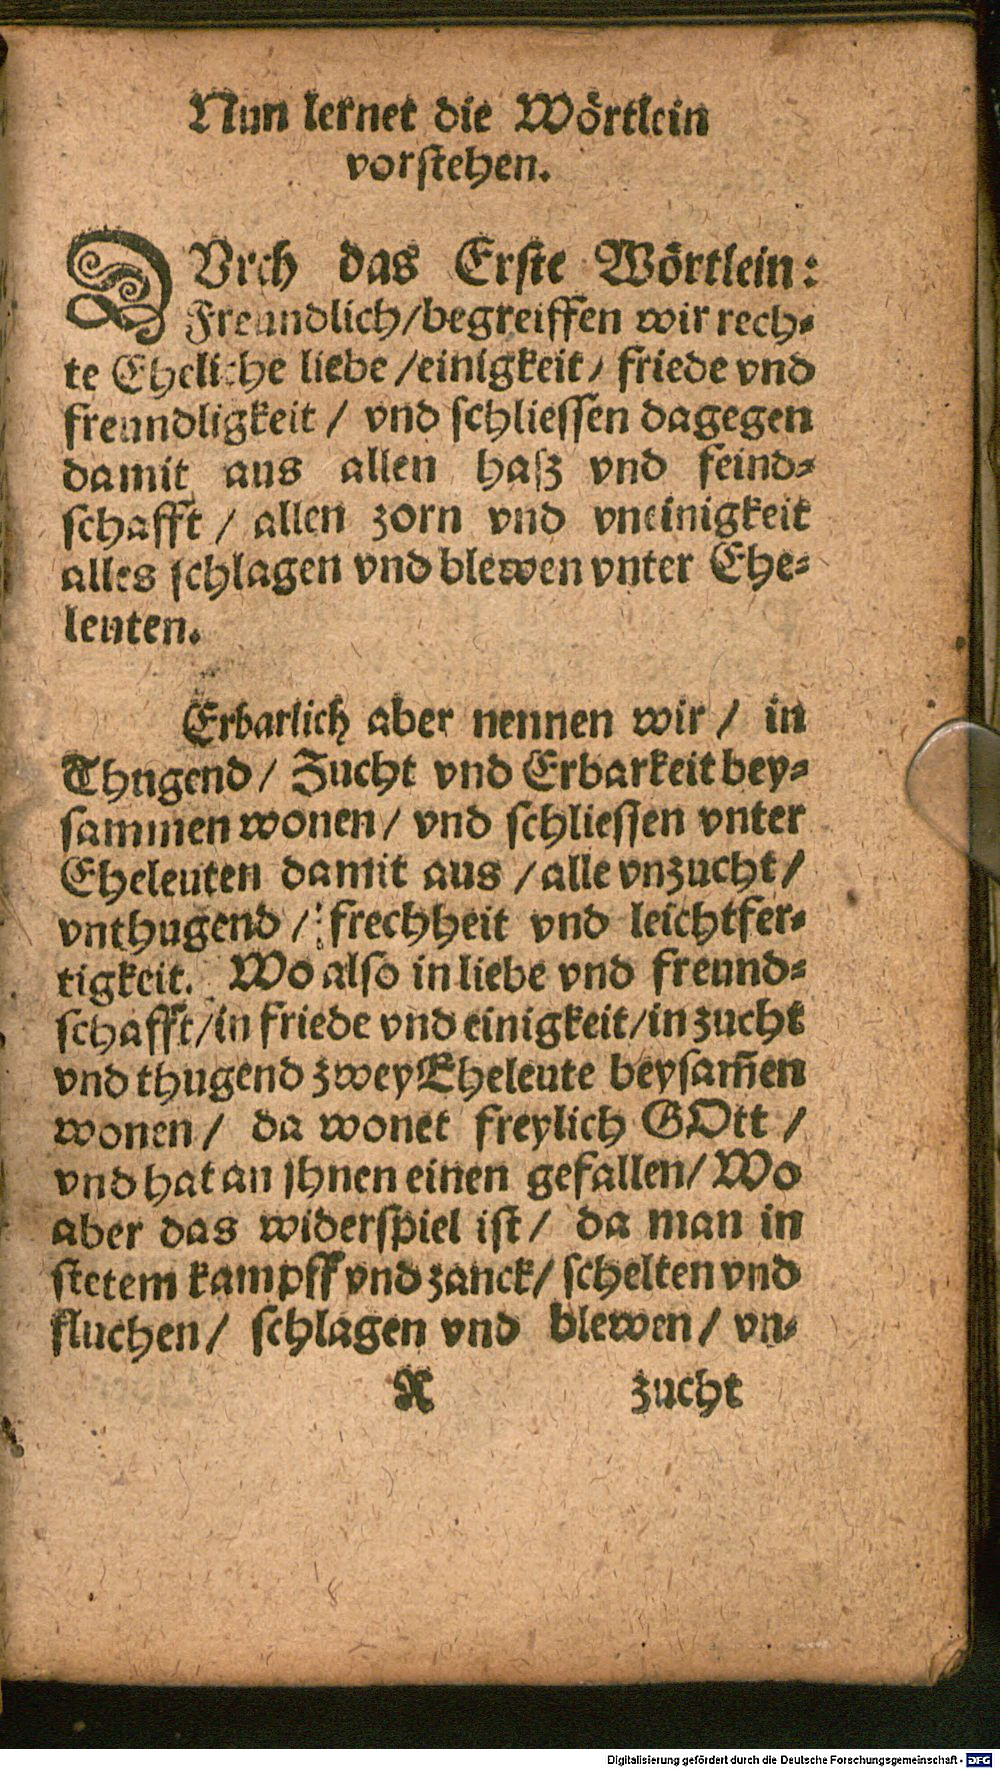 Nun lernet die Wörtlein
vorstehen.
DVrch das Erste Wörtlein:
Freundlich/begreiffen wir rech-
te Eheliche liebe /einigkeit/ friede vnd
freundligkeit / vnd schliessen dagegen
damit aus allen haß vnd feind-
schafft / allen zorn vnd vneinigkeit
alles schlagen vnd blewen vnter Ehe-
leuten.
Erbarlich aber nennen wir / in
Thugend/ Zucht vnd Erbarkeit bey-
sammen wonen/ vnd schliessen vnter
Eheleuten damit aus /alle vnzucht/
vnthugend / frechheit vnd leichtfer-
tigkeit. Wo also in liebe vnd freund-
schafft/in friede vnd einigkeit/in zucht
vnd thugend zwey Eheleute beysam̃en
wonen/ da wonet freylich GOtt /
vnd hat an ihnen einen gefallen/ Wo
aber das widerspiel ist/ da man in
stetem kampff vnd zanck/ schelten vnd
fluchen/ schlagen vnd blewen/ vn-
R zucht
Digitalisierung gefördert durch die Deutsche Forschungsgemeinschaft - DFG